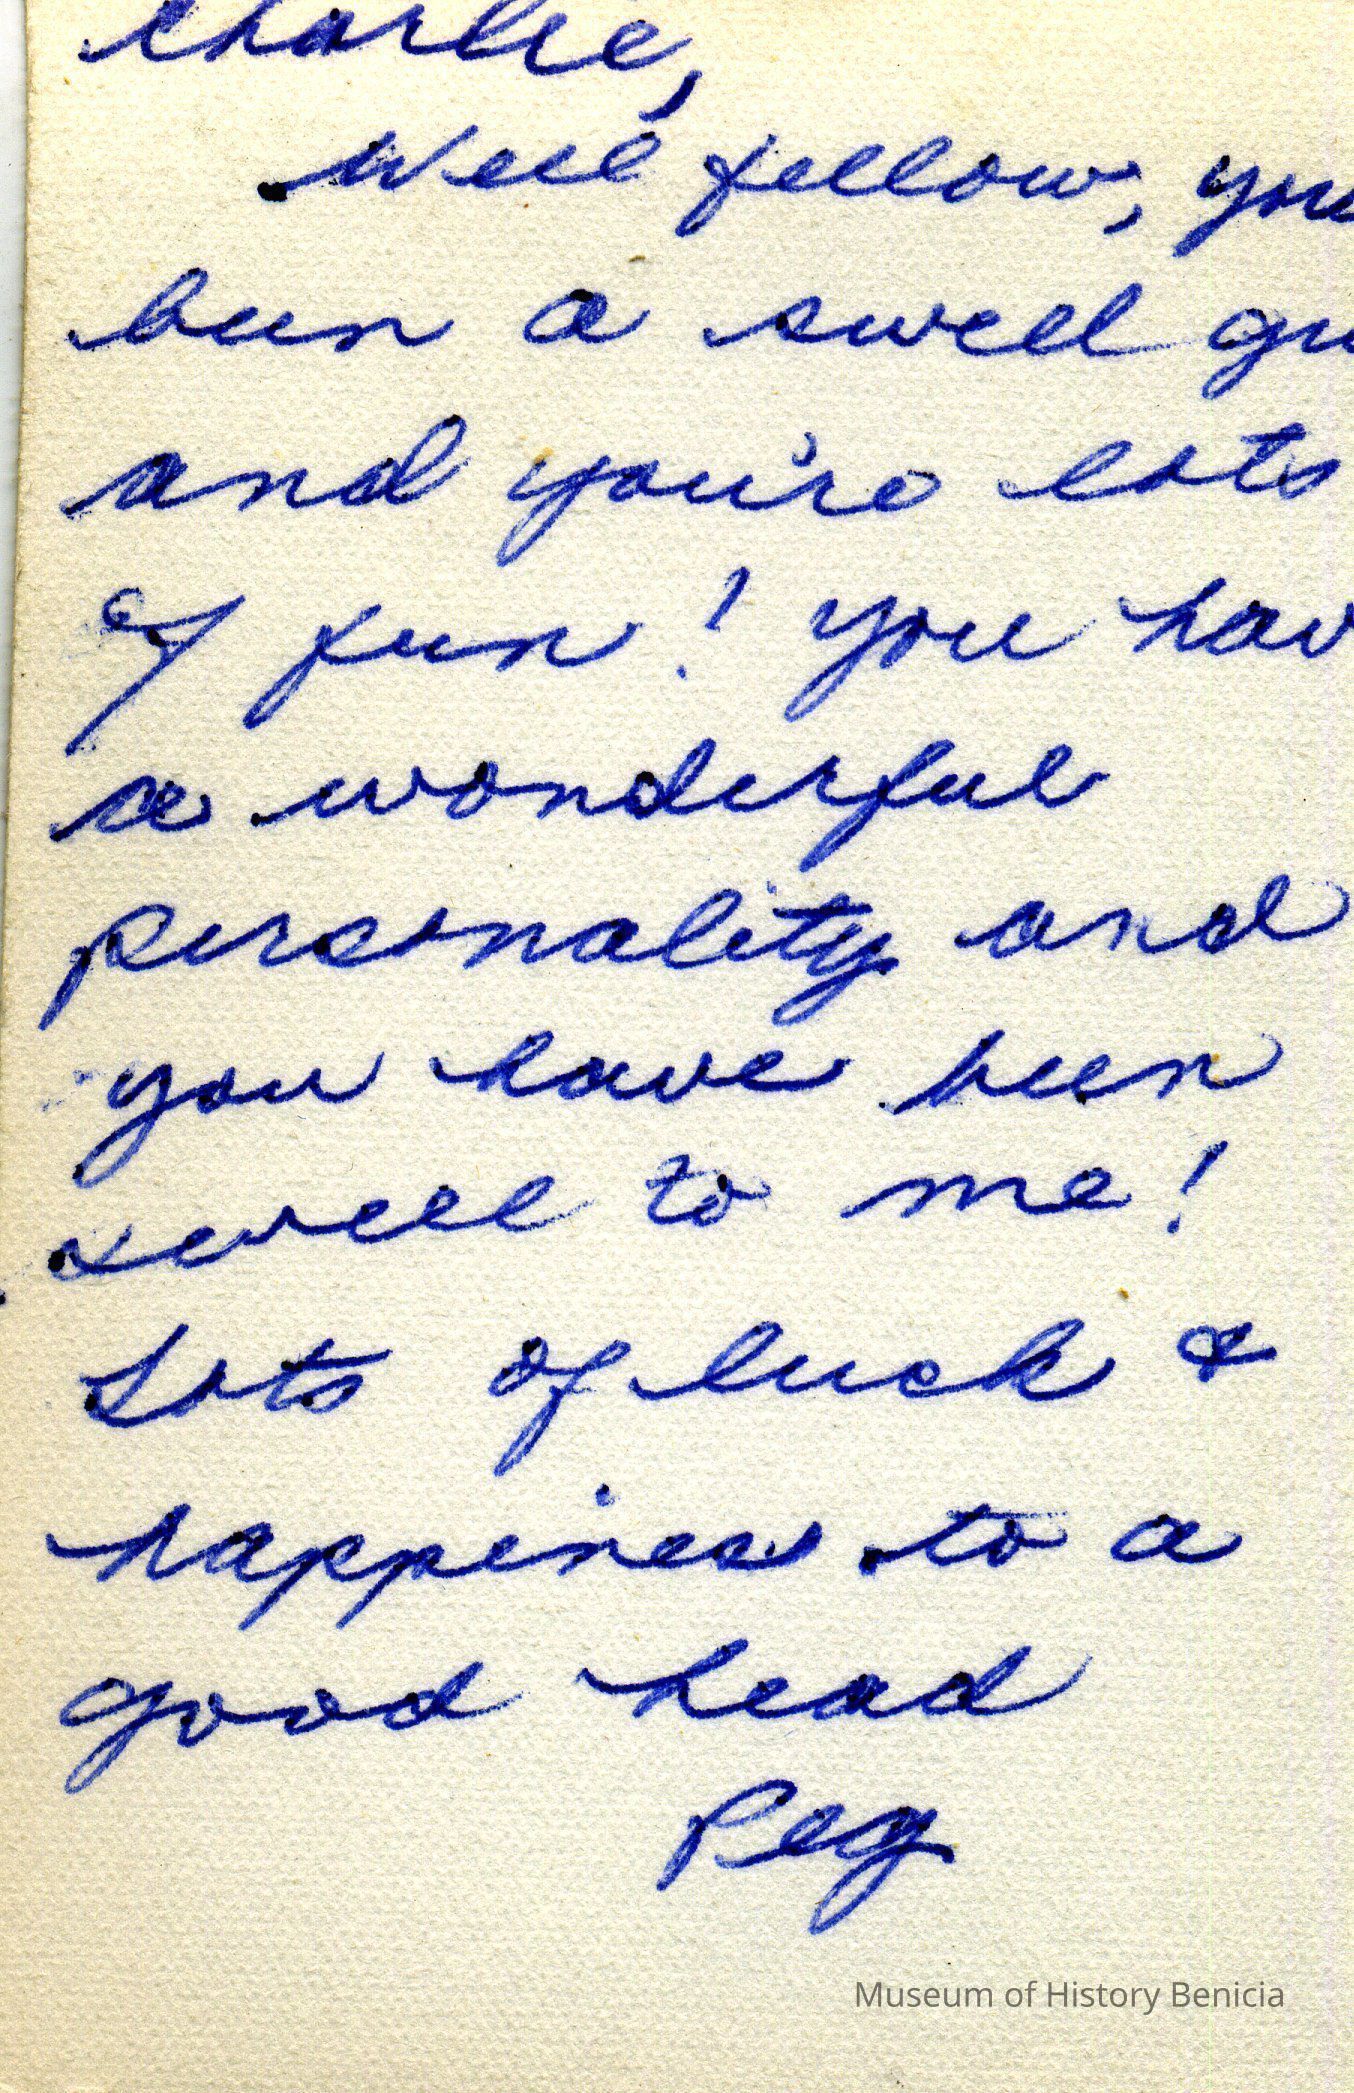 Charlie,
Well fellow, you
been a swell gu
and you're lots
of fun! You hav
a wonderful
personality and
you have been
swell to me!
Lots of luck &
happiness to a
good head
Peg
Museum of History Benicia